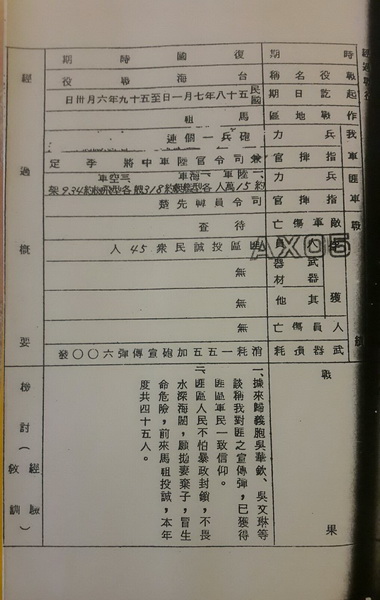 經過戰名
時期 復國時期
戰役名稱 台海戰役
起訖日期 民國五十八年七月一日至五十九年六月卅日
作戰地區 馬祖
我軍 兵力 砲兵一個連
指揮官 兼司令官陸軍中將李定
匪軍 兵力 一、陸軍 二、海軍 三、空軍
約15萬人 各型艦艇318艘 各型飛機約934架
指揮官 司令員韓先楚
戰績
敵軍傷亡 待查
人員 匪區投誠民衆45人
武器 無
器材
其他 無
人員傷亡 無
武器損耗 消耗一五五加砲宣傳彈六000發
經過概要
戰果
一、據來歸義胞吳華欽、吳文琳等
談稱我對匪之宣傳彈，已獲得
匪區軍民一致信仰。
二、匪區人民不怕暴政封鎖，不畏
水深海闊，願拋妻棄子，冒生
命危險，前來馬祖投誠，本年
度共四十五人。
檢討（經驗教訓）
AX05